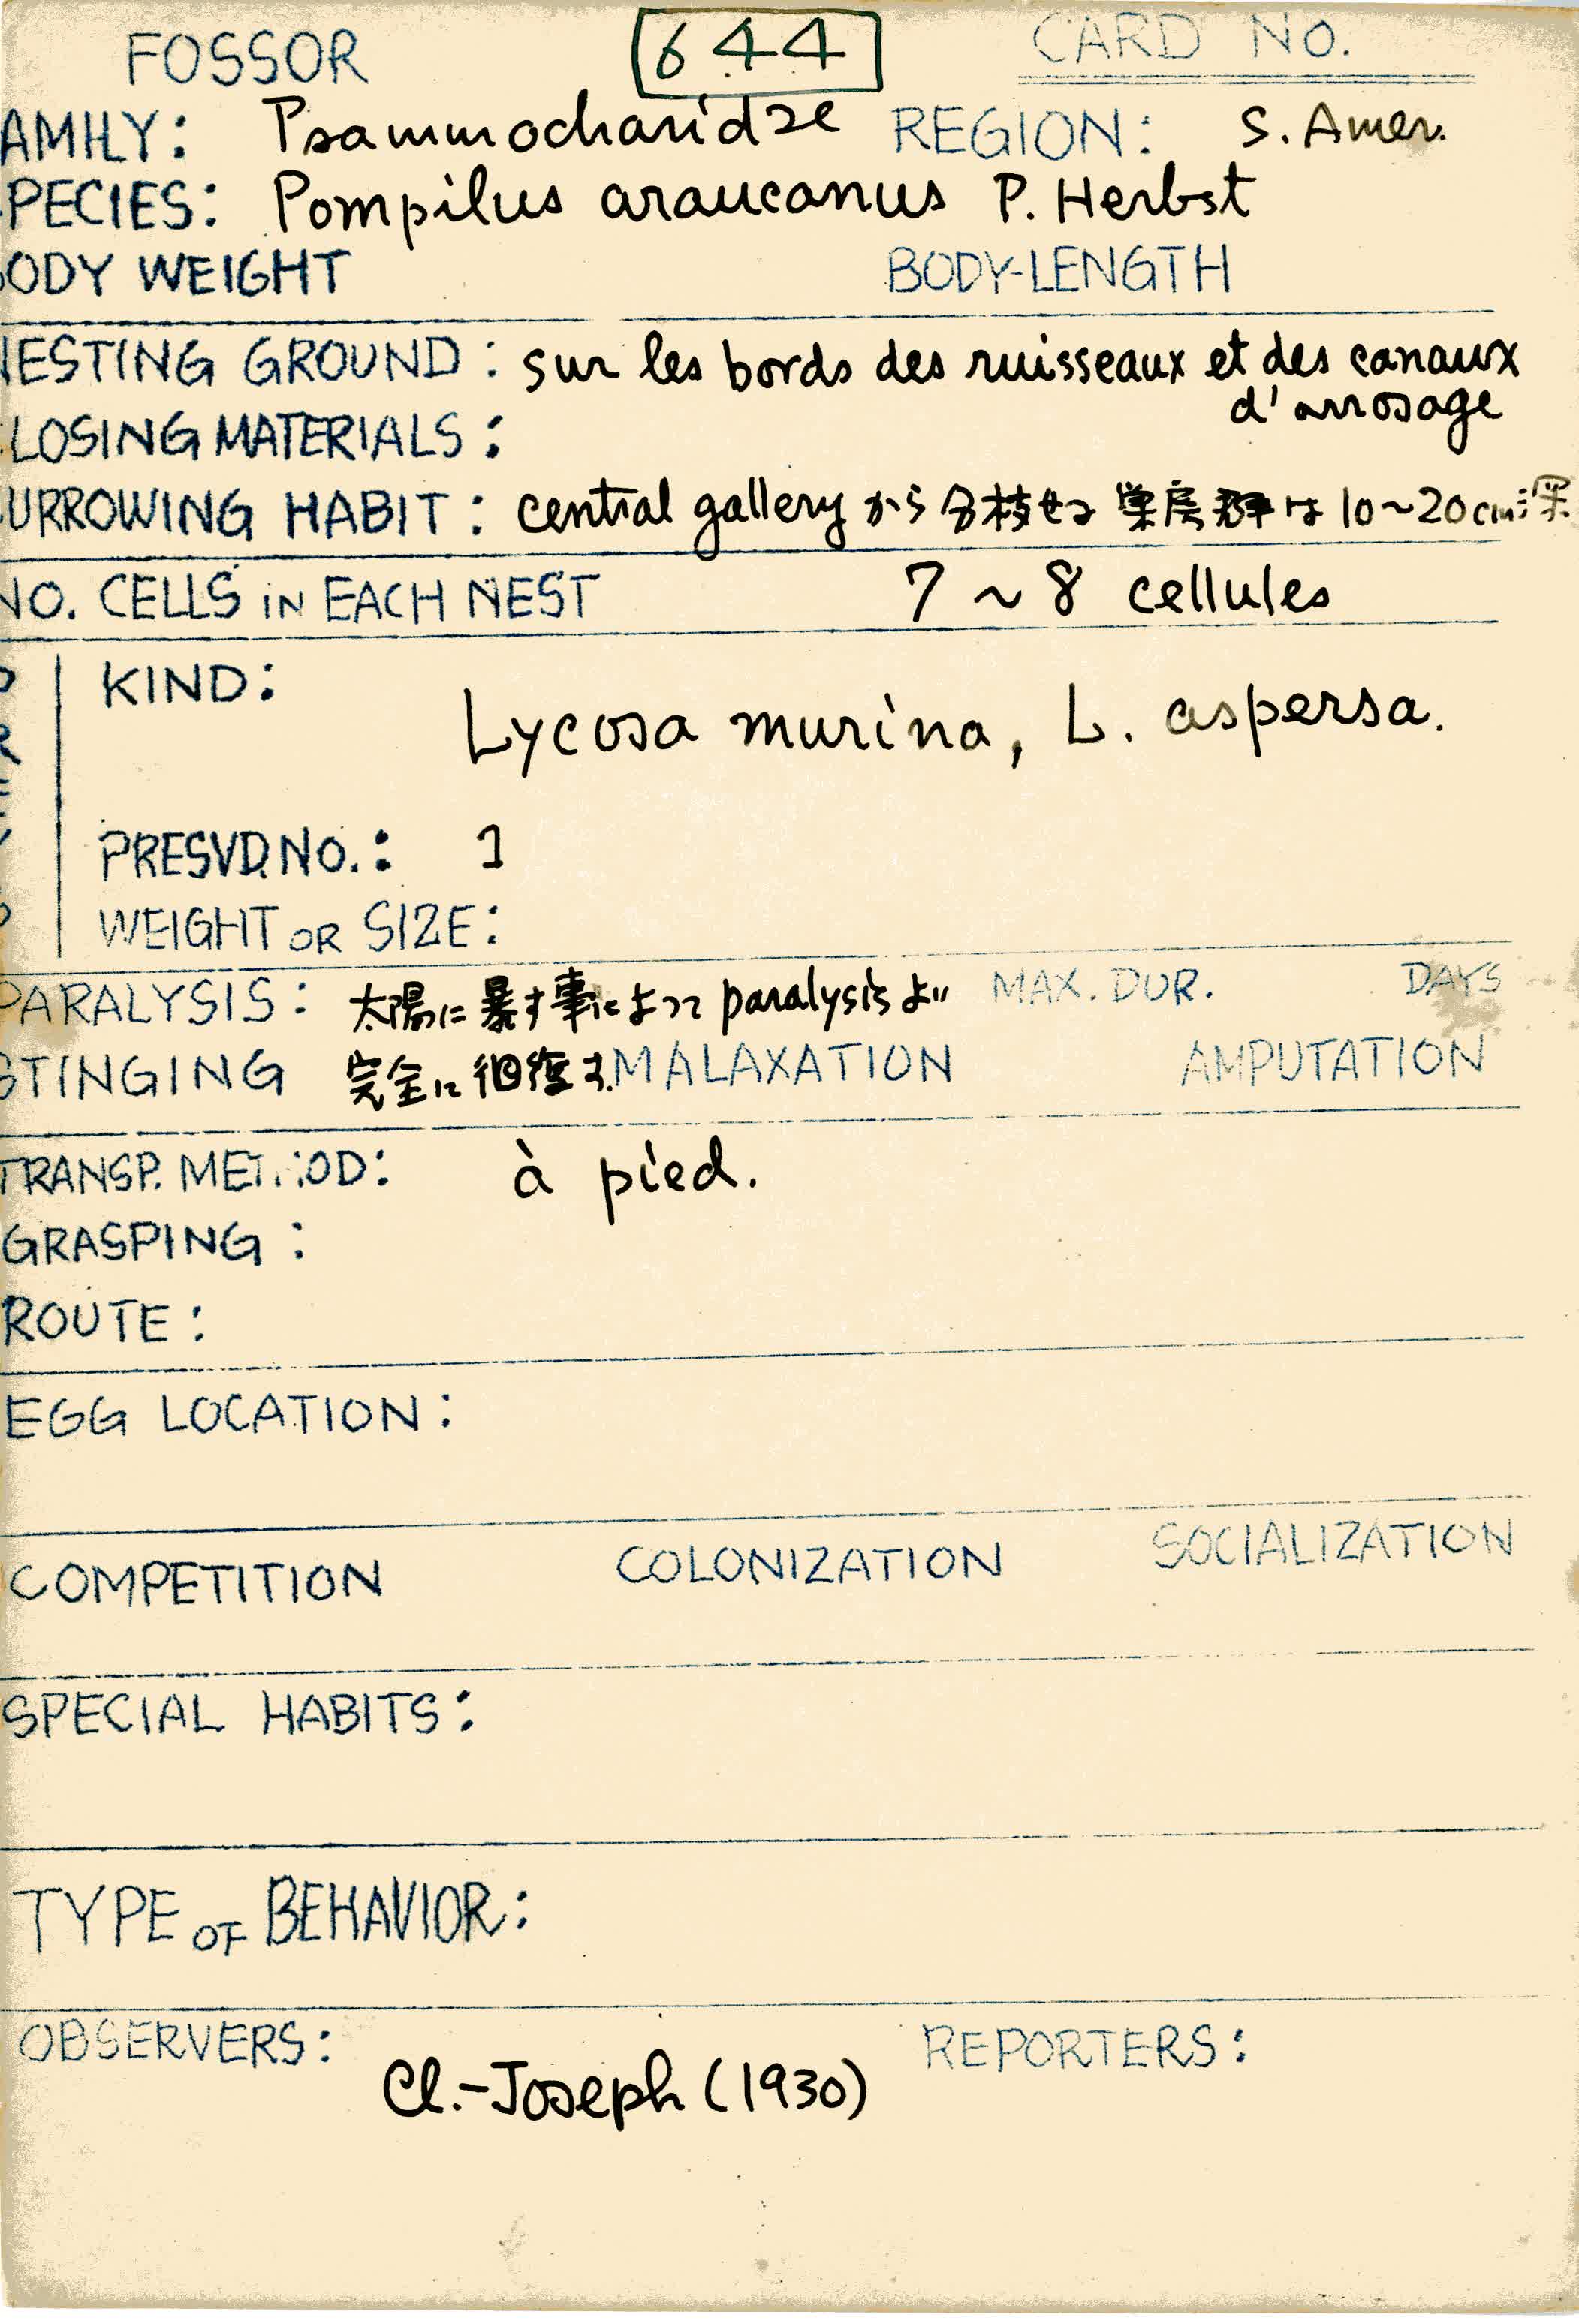 FOSSOR 644 CARD NO.
AMILY: Psammocharidae REGION: S. Amer.
PECIES: Pompilus araucanus P. Herbst
ODY WEIGHT BODY-LENGTH
NESTING GROUND: sur les bords des ruisseaux et des canaux
d'arrosage
LOSING MATERIALS:
URROWING HABIT: central gallery から分枝せる 巣房群は 10~20cm深
NO. CELLS IN EACH NEST 7~8 cellules
KIND:
Lycosa murina, L. aspersa.
PRESVD.NO.: 1
WEIGHT OR SIZE:
PARALYSIS: 太陽に暴す事によって paralysisより MAX. DUR. DAYS
STINGING 完全に恢復す. MALAXATION AMPUTATION
TRANSP. METHOD: à pied.
GRASPING:
ROUTE:
EGG LOCATION:
COMPETITION COLONIZATION SOCIALIZATION
SPECIAL HABITS:
TYPE OF BEHAVIOR:
OBSERVERS: REPORTERS:
Cl.-Joseph (1930)